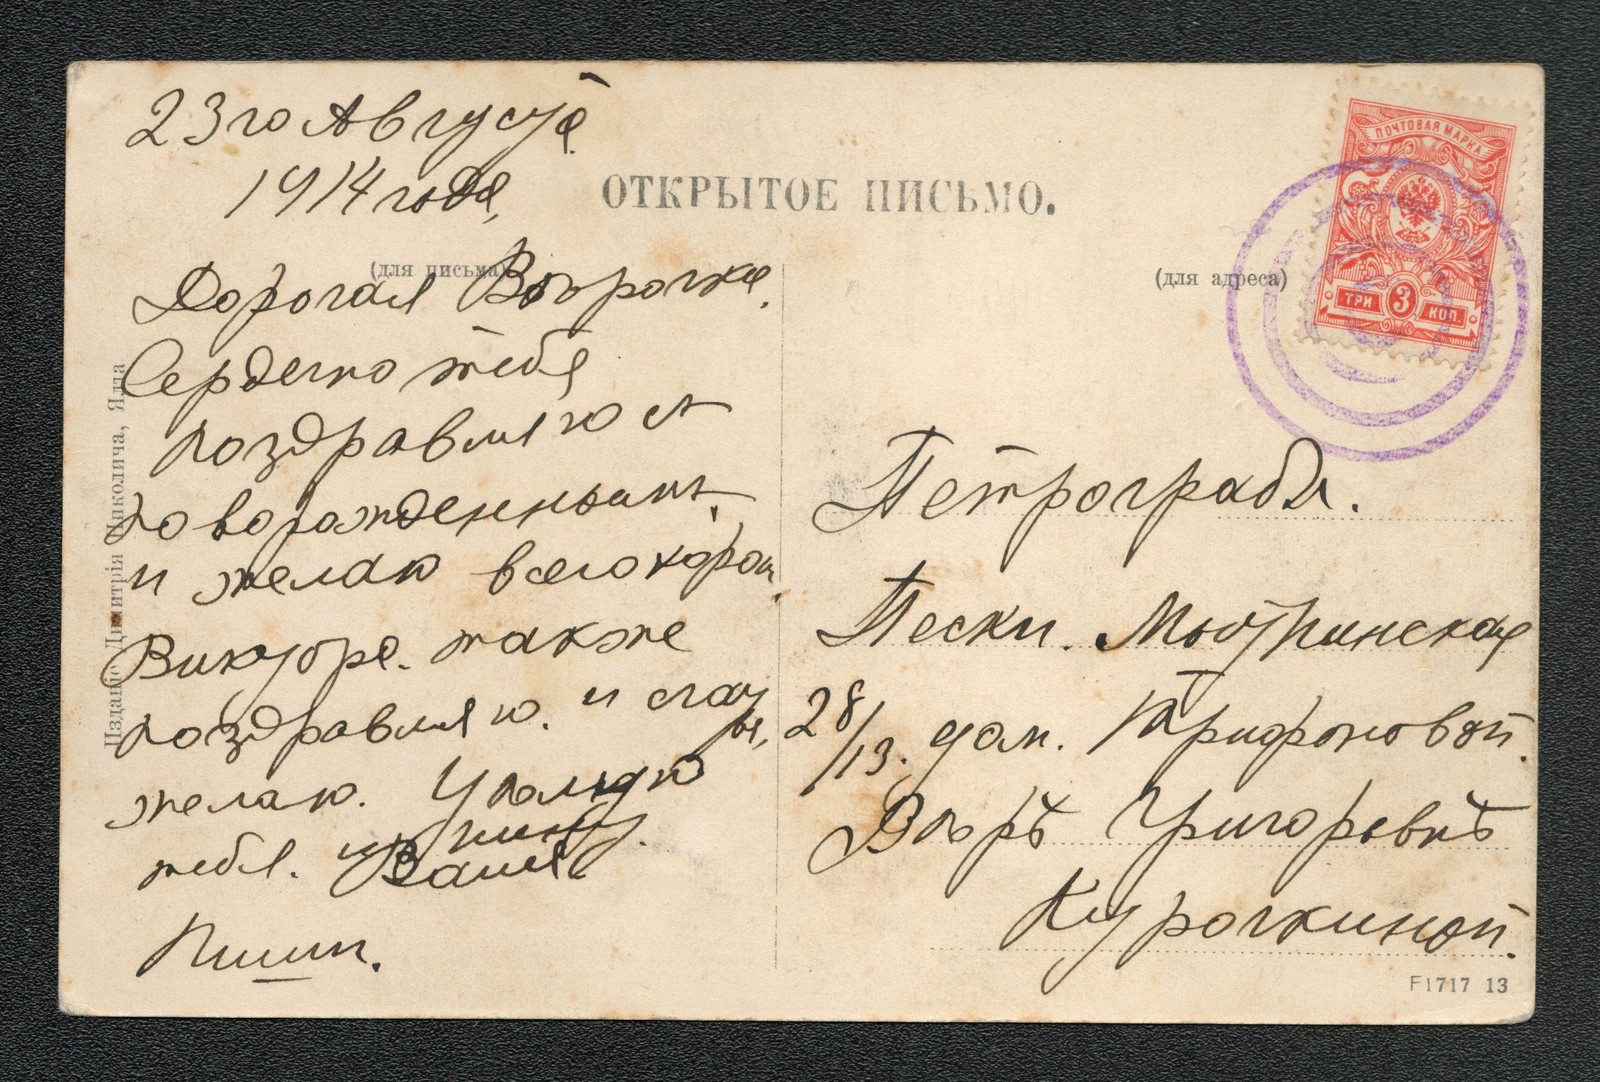 23го Августа
1914 года,
ОТКРЫТОЕ ПИСЬМО.
(для письма)
Дорогая Вѣрочка.
Сердечно тебя
поздравляю съ
новорожденнымъ,
и желаю всего хорош.
Виктора. также
поздравляю. и счастья,
желаю. Цѣлую
тебя.
Ваня.
Пиши.
Изданіе Димитрія Николича, Ялта
(для адреса)
ПОЧТОВАЯ МАРКА
ТРИ 3 КОП.
Петроградъ.
Пески. Мытнинская
28/13. дом. Трифоновой.
Вѣрѣ Григорьевнѣ
Курочкиной.
F1717 13